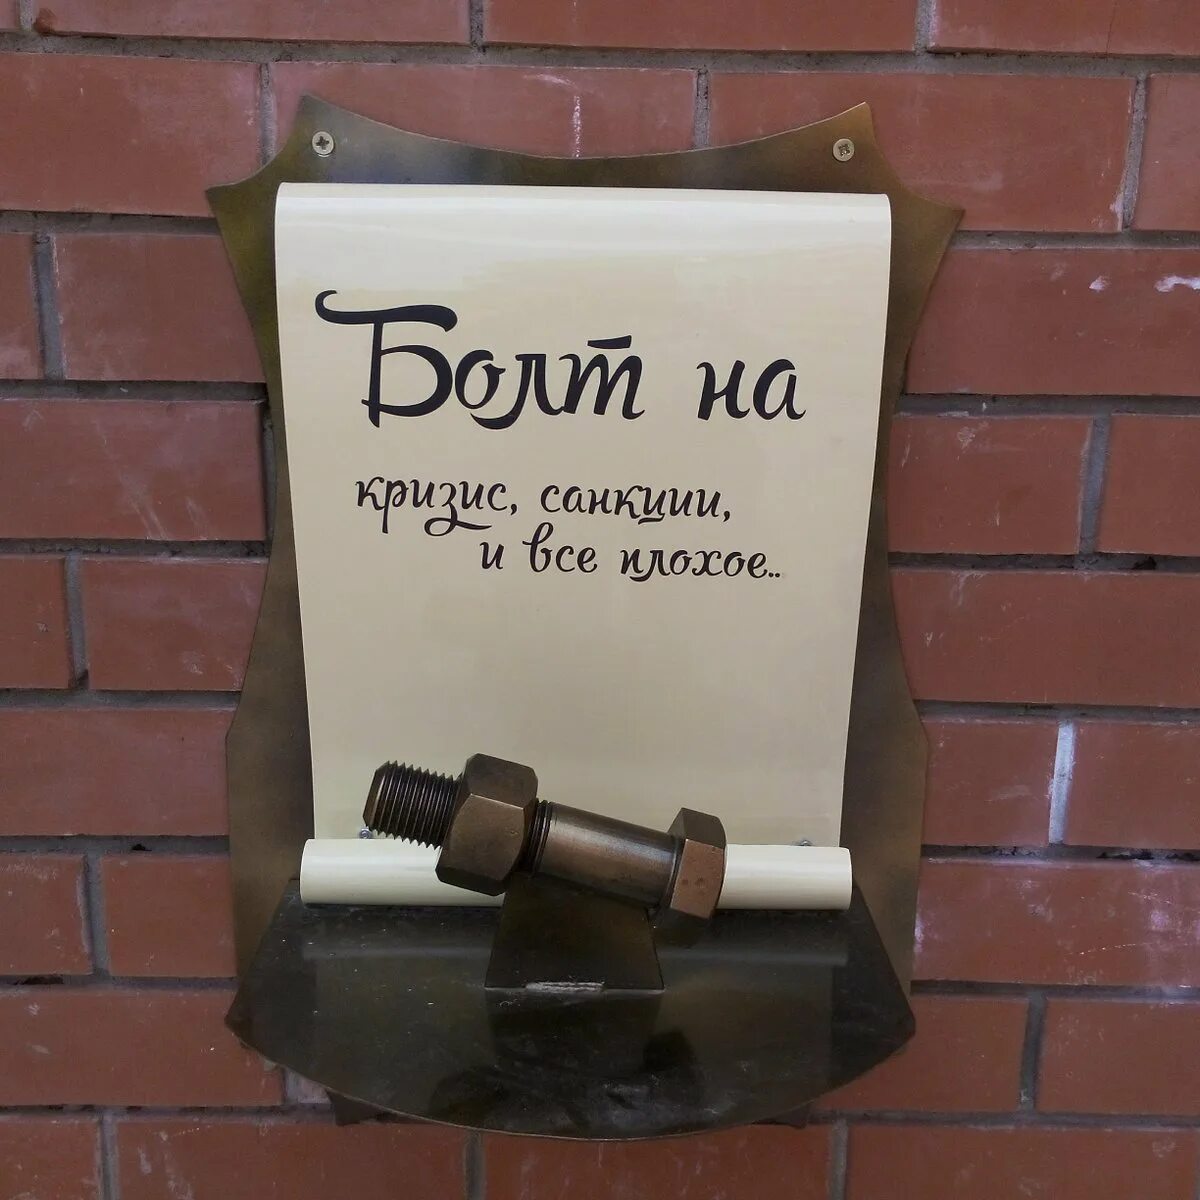 Болт на
кризис, санкции,
и все плохое..